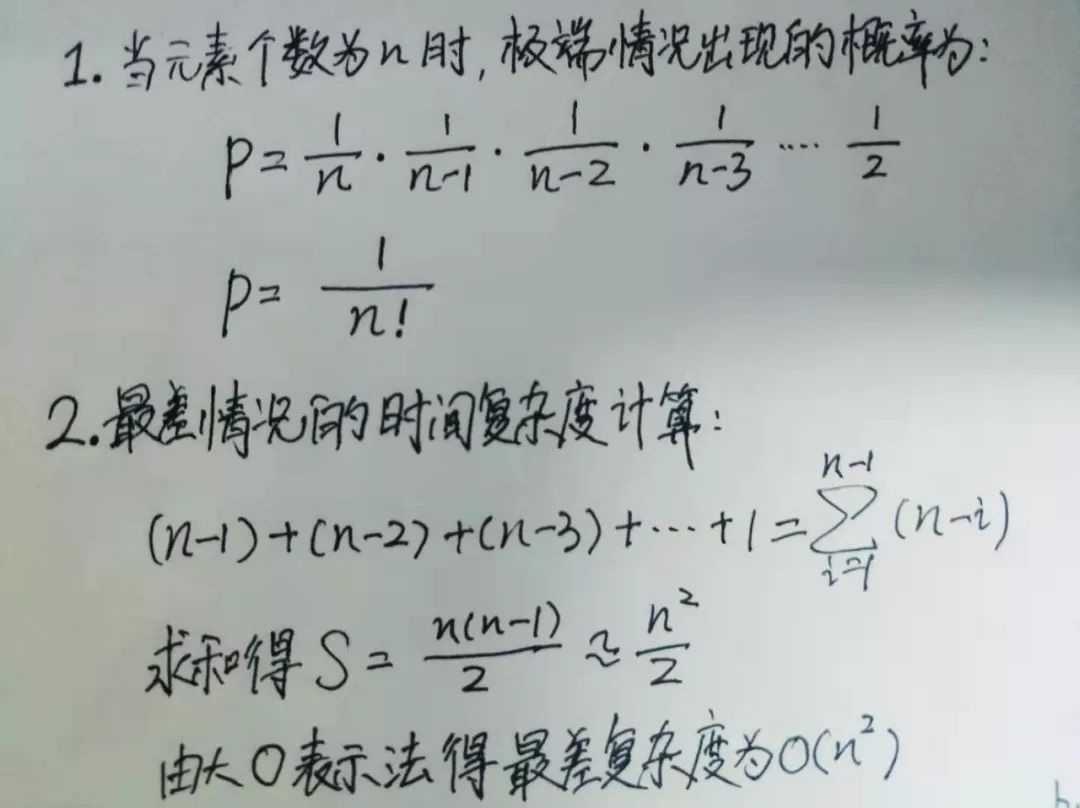 1.当元素个数为n时,极端情况出现的概率为:
P=1/n·1/(n-1)·1/(n-2)·1/(n-3)····1/2
P=1/n!
2.最差情况的时间复杂度计算:
(n-1)+(n-2)+(n-3)+···+1=∑_{i=1}^{n-1}(n-i)
求和得S=n(n-1)/2≈n²/2
由大O表示法得最差复杂度为O(n²)